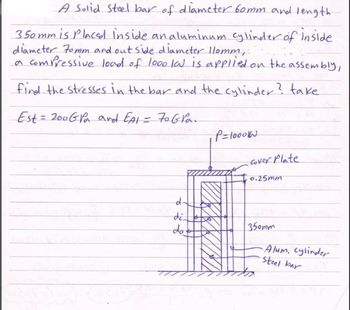 A Solid Steel bar of diameter 60mm and length
350mm is placed inside an aluminum cylinder of inside
diameter 70mm and outside diameter 110mm,
a compressive load of 1000 kN is applied on the assembly,
find the stresses in the bar and the cylinder? take
Est = 200GPa and EAl = 70GPa.
P=1000kN
cover plate
0.25mm
d
di
do
350mm
Alum. cylinder
steel bar